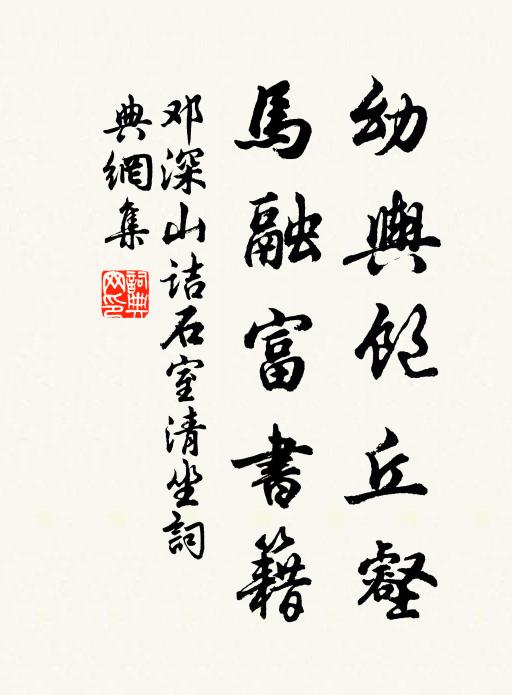 幼輿飽丘壑
馬融富書籍
邓深山诘石室清坐詞
典網集
詞典网印